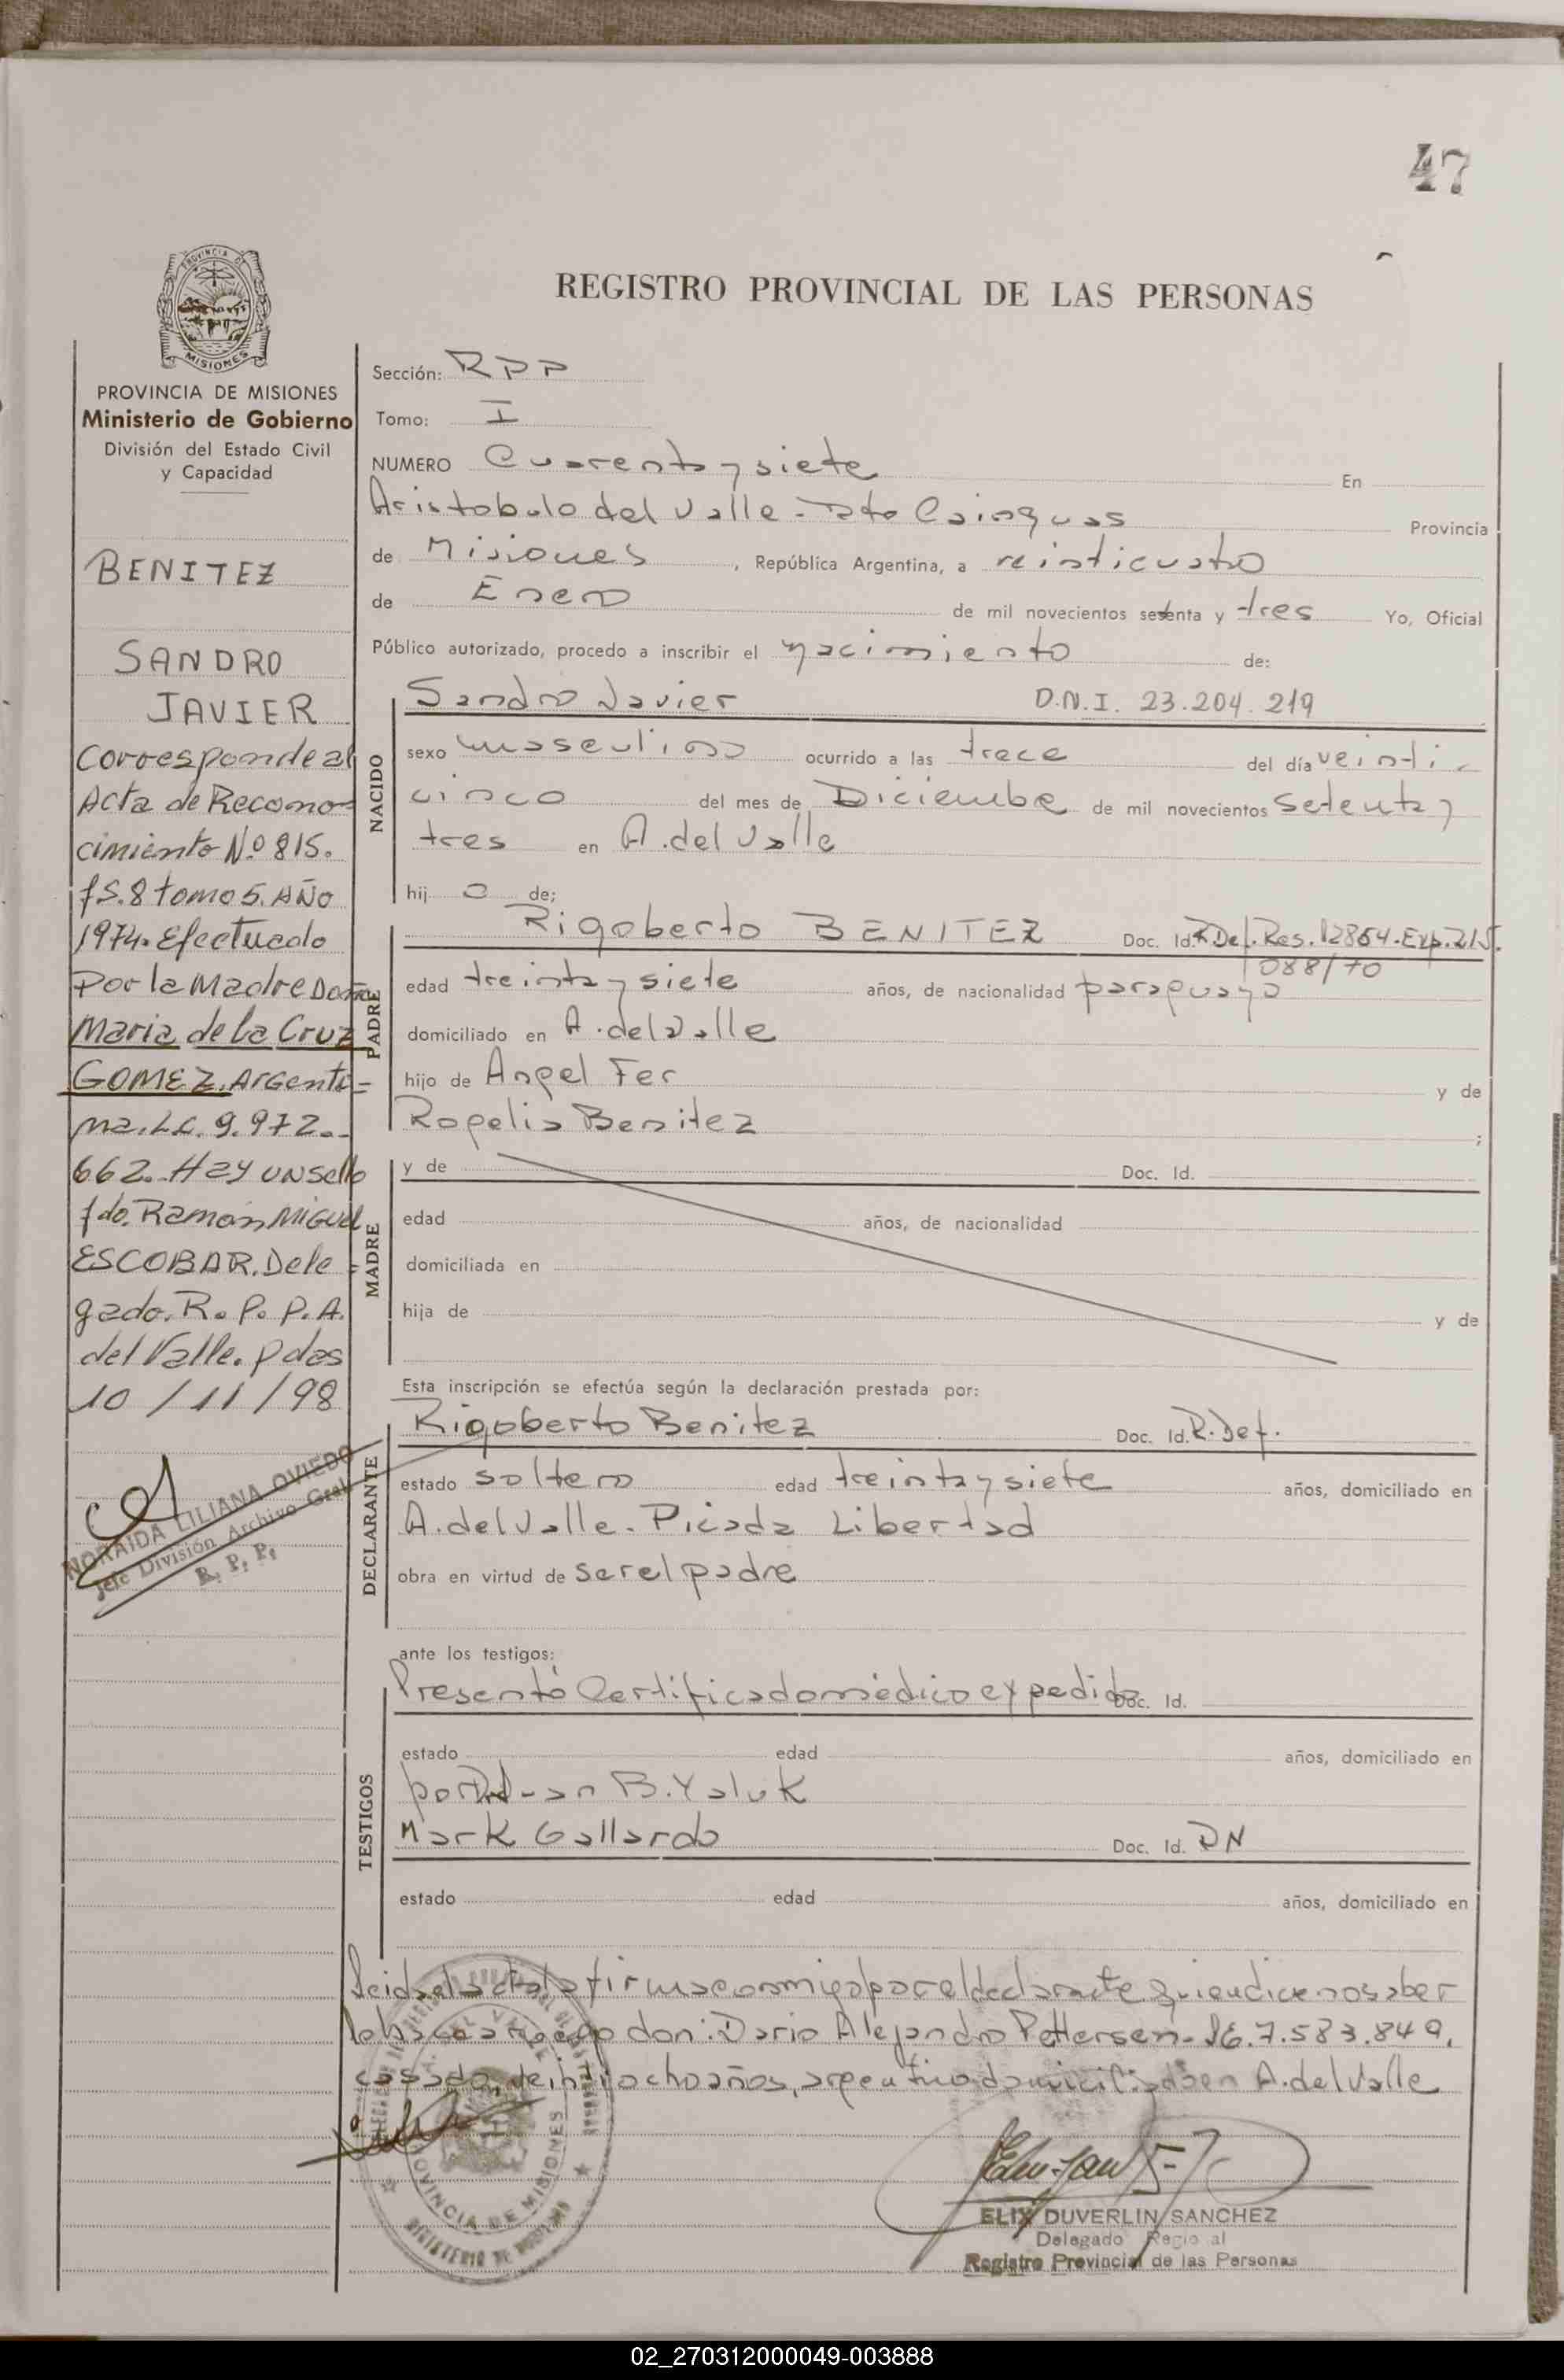 47
PROVINCIA DE
MISIONES
REGISTRO PROVINCIAL DE LAS PERSONAS
PROVINCIA DE MISIONES
Ministerio de Gobierno
División del Estado Civil
y Capacidad
BENITEZ
SANDRO
JAVIER
Corresponde al
Acta de Recono=
cimiento Nº 815.
fs. 8 tomo 5. AÑO
1974. Efectuado
Por la Madre Doña
Maria de la Cruz
GOMEZ. Argenti=
na. L.C. 9.972.-
662. Hay un sello
fdo. Ramón MIGUEL
ESCOBAR. Dele=
gado. R. P. P. A.
del Valle. Pdas
10/11/98
NORAIDA LILIANA OVIEDO
Jefe División Archivo Gral
R. P. P.
Sección: RPP
Tomo: I
NUMERO Cuarenta y siete En
Aristobulo del Valle - Dto Cainguas Provincia
de Misiones, República Argentina, a veinticuatro
de Enero de mil novecientos setenta y tres Yo, Oficial
Público autorizado, procedo a inscribir el nacimiento de:
NACIDO
Sandro Javier D.N.I. 23.204.219
sexo masculino ocurrido a las trece del día veinti-
cinco del mes de Diciembre de mil novecientos setenta y
tres en A. del Valle
hij o de;
PADRE
Rigoberto BENITEZ Doc. Id. R.Def. Res. 12864. Exp. 215.
088/70
edad treinta y siete años, de nacionalidad paraguaya
domiciliado en A. del Valle
hijo de Angel Fer y de
Rogelia Benitez ;
MADRE
y de Doc. Id.
edad años, de nacionalidad
domiciliada en
hija de y de
Esta inscripción se efectúa según la declaración prestada por:
DECLARANTE
Rigoberto Benitez Doc. Id. R. Def.
estado soltero edad treinta y siete años, domiciliado en
A. del Valle. Picada Libertad
obra en virtud de ser el padre
ante los testigos:
TESTIGOS
Presentó Certificado médico expedido Doc. Id.
estado edad años, domiciliado en
por Juan B. Yaluk
Mark Gallardo Doc. Id. DN
estado edad años, domiciliado en
Leida el acta la firma conmigo por el declarante quien dice no saber
lo hace a ruego don: Dario Alejandro Pettersen - 7.583.849,
casado, veintiocho años, argentino domiciliado en A. del Valle
PROVINCIA DE MISIONES
MINISTERIO DE GOBIERNO
ELIX DUVERLIN SANCHEZ
Delegado Regional
Registro Provincial de las Personas
02_270312000049-003888